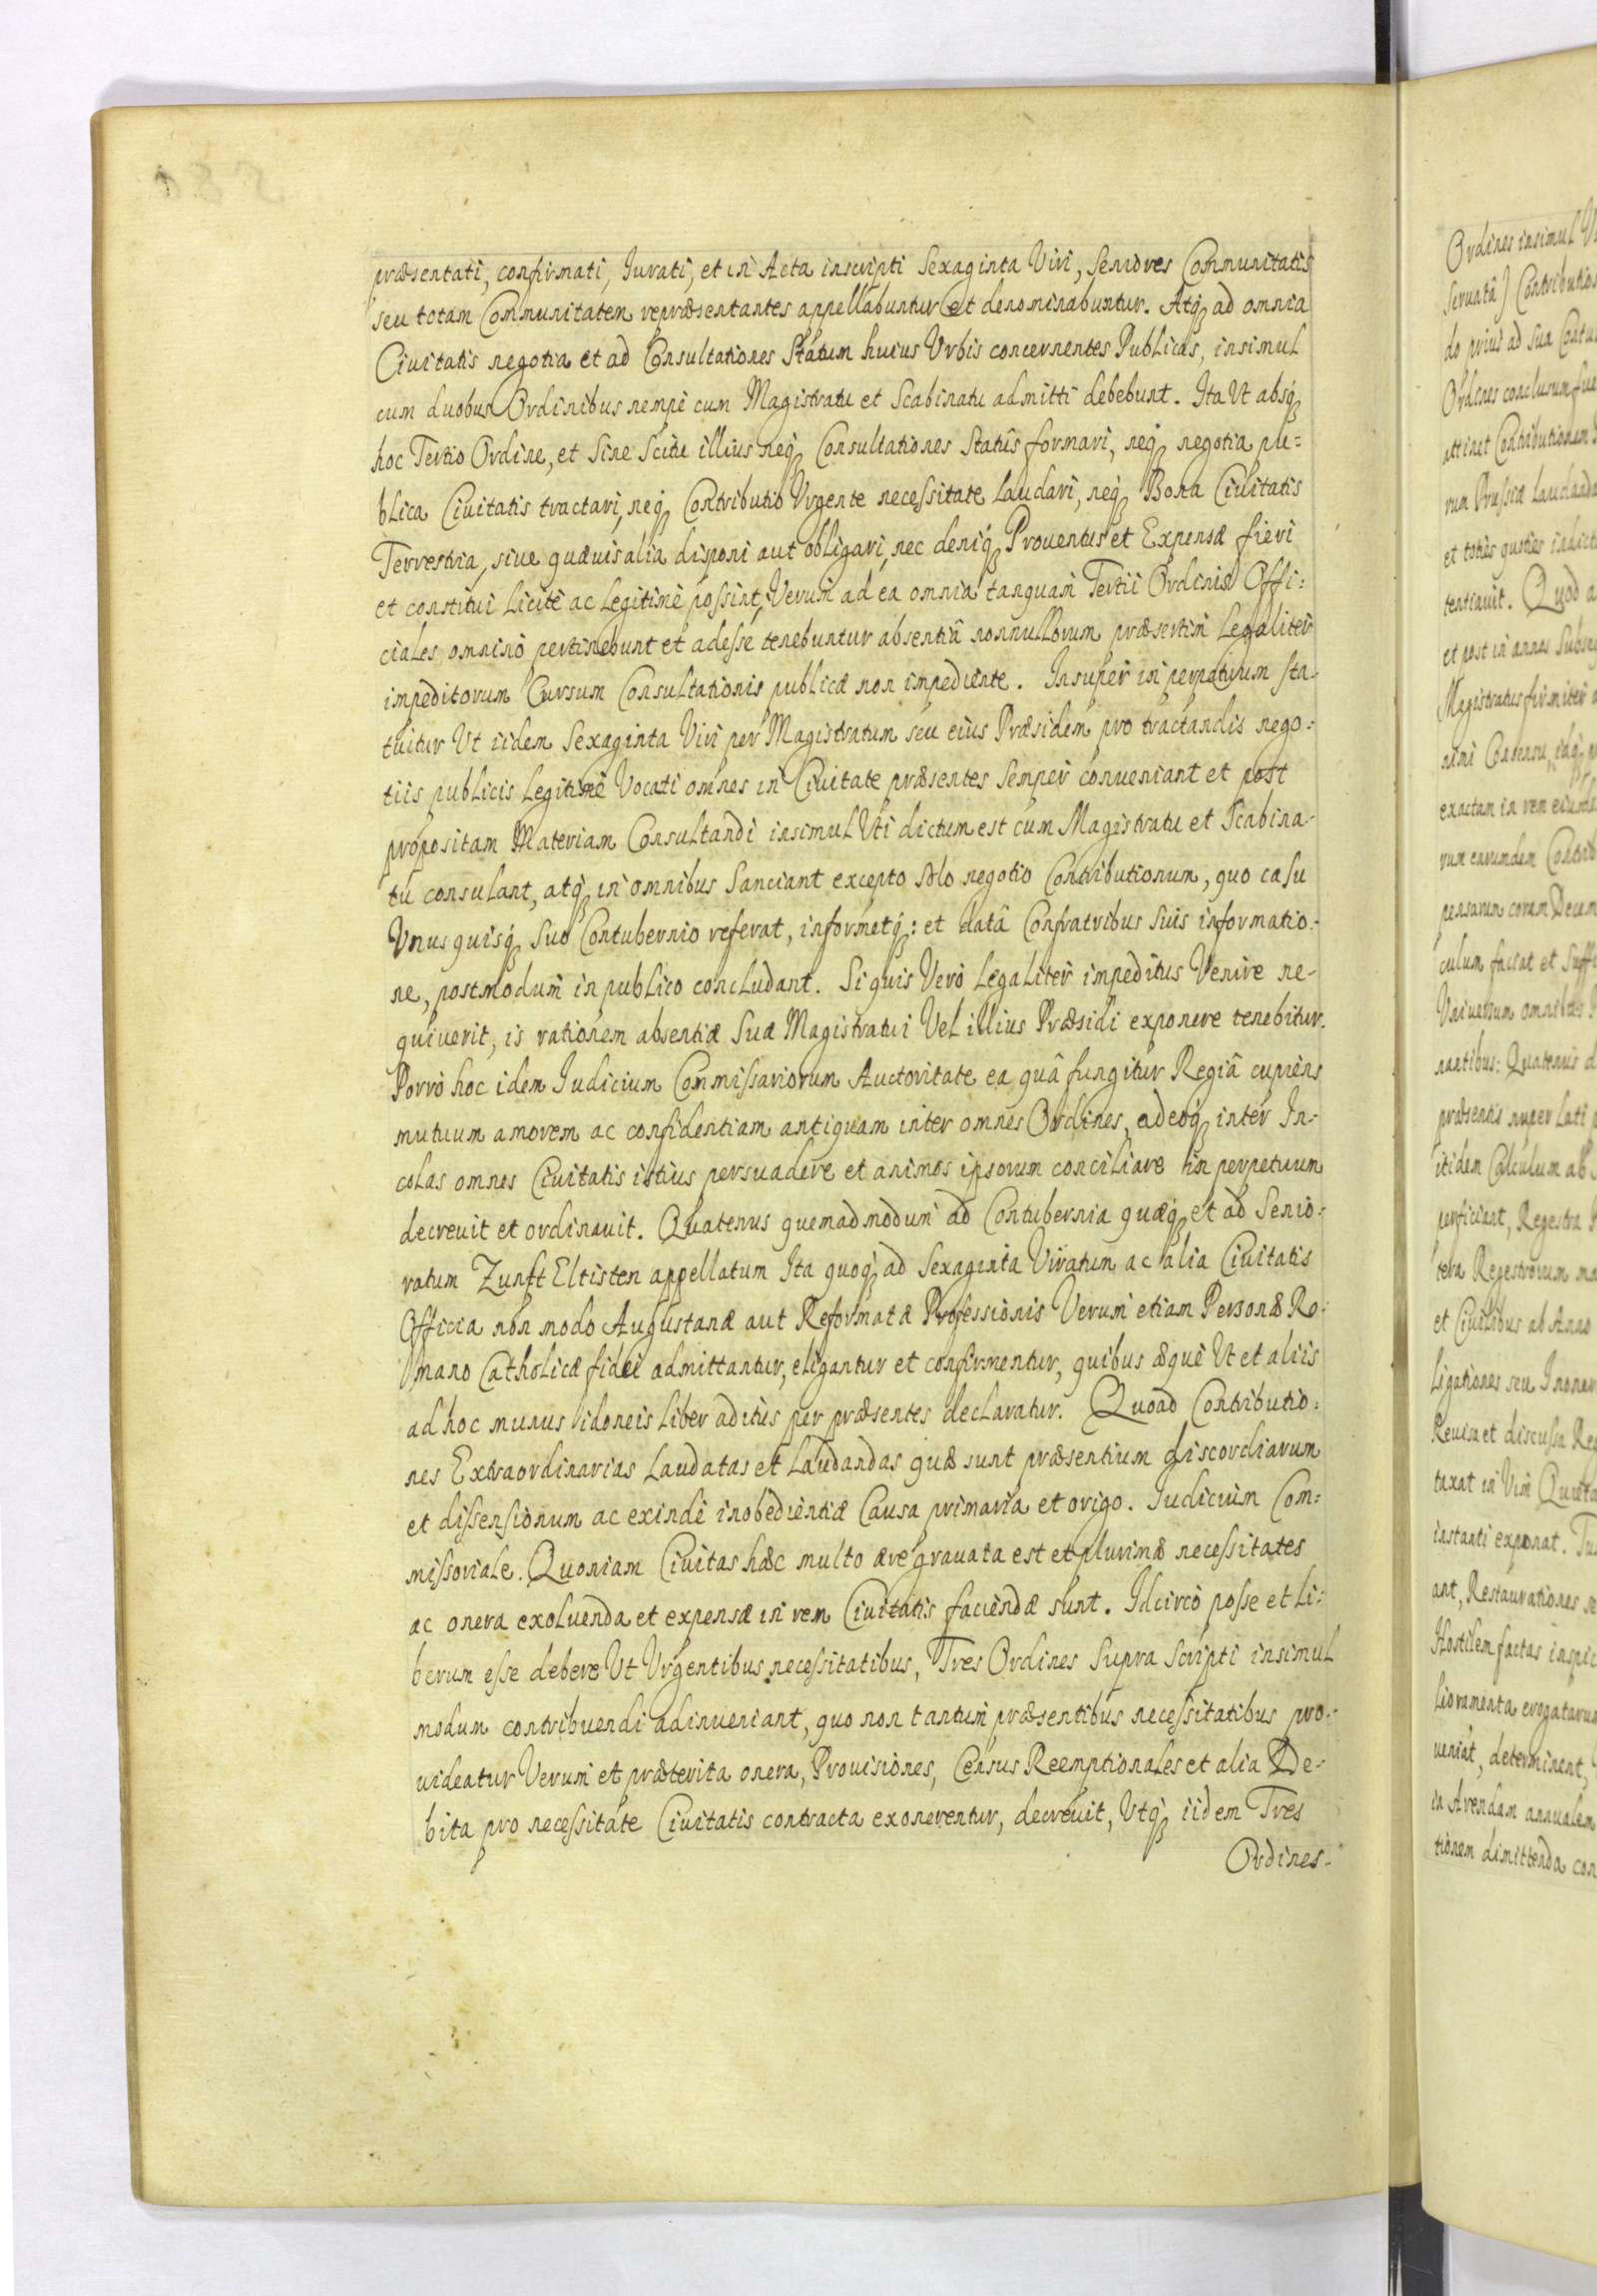 præsentati, confirmati, Iurati, et in Acta inscripti Sexaginta Viri, Seniores Communitatis
seu totam Communitatem repræsentantes appellabuntur et denominabuntur. Atq ad omnia
Ciuitatis negotia et ad Consultationes Statum huius Vrbis concernentes Publicas, insimul
cum duobus Ordinibus nempè cum Magistratu et Scabinatu admitti debebunt. Ita Vt absq
hoc Tertio Ordine, et sine Scitu illius neq Consultationes Statûs formari, neq negotia pu=
blica Ciuitatis tractari, neq Contributio Vrgente necessitate Laudari, neq Bona Ciuitatis
Terrestria, siue quæuis alia disponi aut obligari, nec deniq Prouentus et Expensæ fieri
et constitui Licitè ac Legitimè possint, Verum ad ea omnia tanquam Tertii Ordinis Offi=
ciales omninò pertinebunt et adesse tenebuntur absentiâ nonnullorum præsertim Legaliter
impeditorum Cursum Consultationis publicæ non impediente. Insuper in perpetuum sta-
tuitur Vt iidem Sexaginta Viri per Magistratum seu eius Præsidem pro tractandis nego=
tiis publicis Legitimè Vocati omnes in Ciuitate præsentes Semper conueniant et post
propositam Materiam Consultandi insimul Vti dictum est cum Magistratu et Scabina-
tu consulant, atq in omnibus Sanciant excepto solo negotio Contributionum, quo casu
Vnus quisq Suo Contubernio referat, informetq: et datâ Confratribus suis informatio-
ne, postmodum in publico concludant. Si quis Verò Legaliter impeditus Venire ne-
quiuerit, is rationem absentiæ Suæ Magistratui Vel illius Præsidi exponere tenebitur.
Porrò hoc idem Iudicium Commissariorum Auctoritate ea quâ fungitur Regiâ cupiens
mutuum amorem ac confidentiam antiquam inter omnes Ordines, adeoq inter In-
colas omnes Ciuitatis istius persuadere et animos ipsorum conciliare in perpetuum
decreuit et ordinauit. Quatenus quemadmodum ad Contubernia quæq et ad Senio=
ratum Zunft Eltisten appellatum Ita quoq ad Sexaginta Viratum ac alia Ciuitatis
Officia non modo Augustanæ aut Reformatæ Professionis Verum etiam Personæ Ro-
mano Catholicæ fidei admittantur, eligantur et confirmentur, quibus æquè Vt et aliis
ad hoc munus idoneis Liber aditus per præsentes declaratur. Quoad Contributio=
nes Extraordinarias Laudatas et Laudandas quæ sunt præsentium discordiarum
et dissensionum ac exindè inobedientiæ Causa primaria et origo. Iudicium Com=
missoriale. Quoniam Ciuitas hæc multo ære grauata est et plurimæ necessitates
ac onera exoluenda et expensæ in rem Ciuitatis faciendæ sunt. Idcircò posse et Li=
berum esse debere Vt Vrgentibus necessitatibus, Tres Ordines Supra Scripti insimul
modum contribuendi adinueniant, quo non tantum præsentibus necessitatibus pro-
uideatur Verum et præterita onera, Prouisiones, Census Reemptionales et alia De-
bita pro necessitate Ciuitatis contracta exonerentur, decreuit, Vtq iidem Tres
Ordines-
Ordines insimul
Seruatâ) Contributio
do prius ad sua Contu
Ordines conclusum fue
attinet Contributionem
rum Prussiæ Laudanda
et toties quoties indict
tentiauit. Quod a
et post in annos Subse
Magistratus firmiter
nimi Consensu
exactam in rem eiusde
rum earundem Contrib
pensarum coram Decem
culum faciat et Suffi
Vniuersum omnibus
nantibus: Quatenus d
præsentis nuper Lati
itidem Calculum ab
perficiant, Regestra
tera Regestrorum ma
et Ciuilibus ab Anno
Ligationes seu Inoner
Reuisa et discussa Reg
taxat in Vim Quieta
instanti exponat.
ant, Restaurationes se
Hostilem factas inspic
Lioramenta erogatarum
ueniat, determinent,
in Arendam annualem
tionem dimittenda con